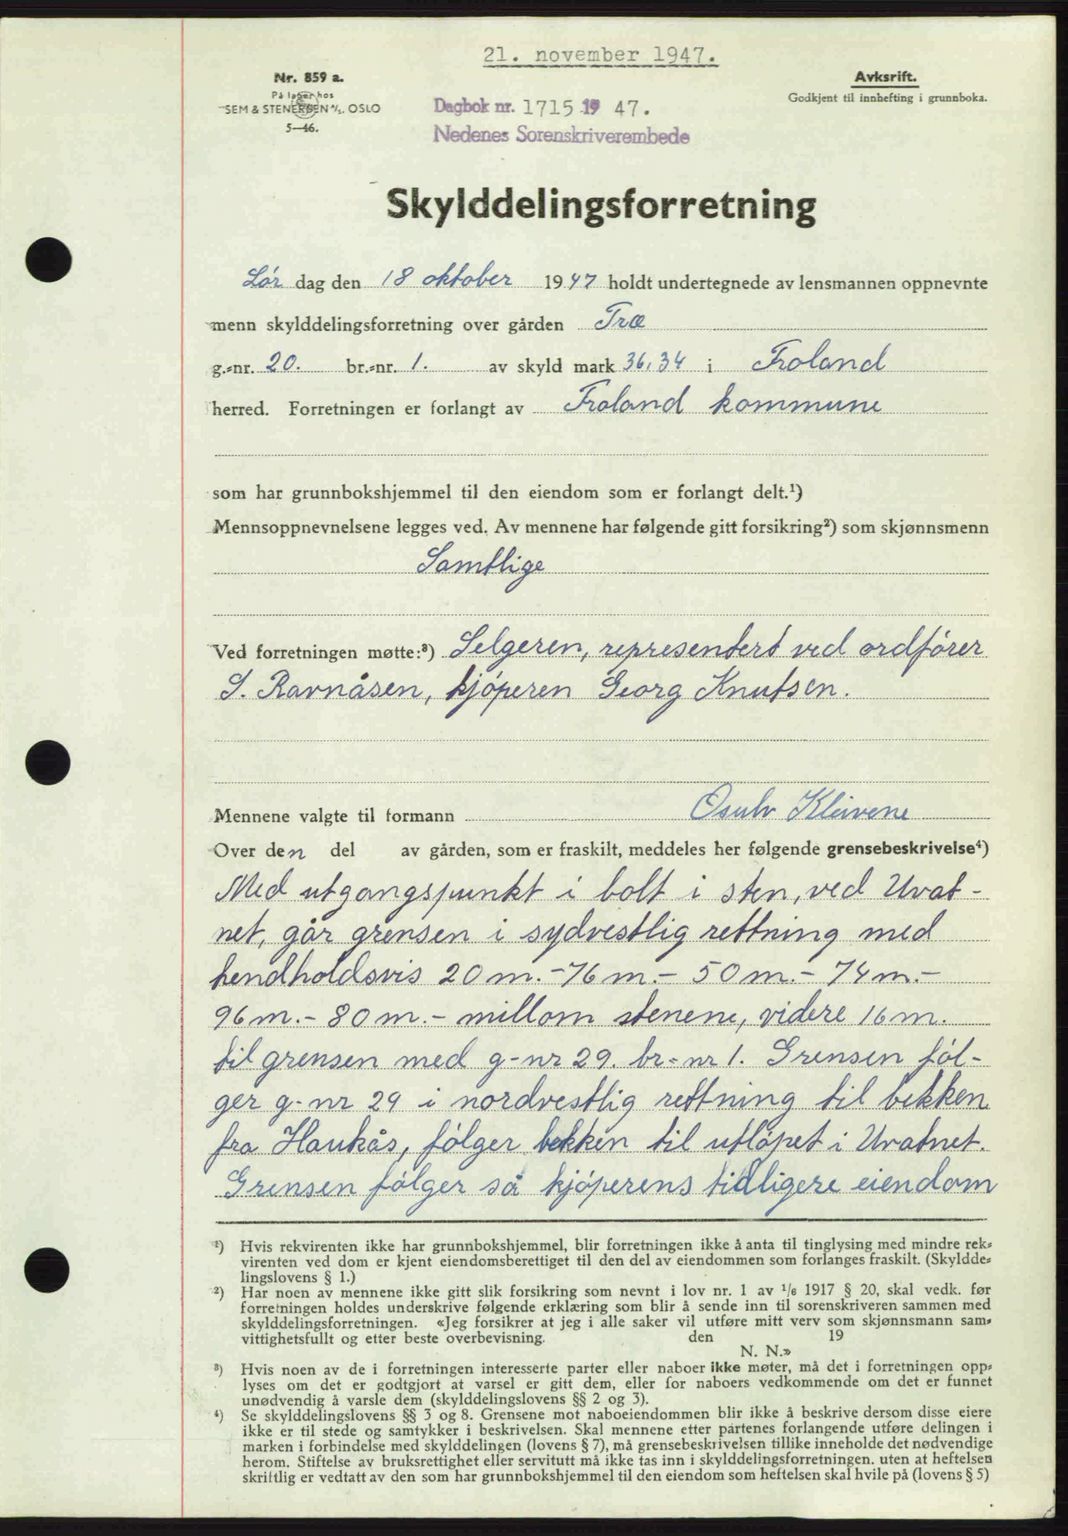 21. november 1947.
Nr. 859 a.
På lager hos
SEM & STENERSEN A/S. OSLO
5-46.
Dagbok nr. 1715 19 47.
Nedenes Sorenskriverembede
Avksrift.
Godkjent til innhefting i grunnboka.
Skylddelingsforretning
Lør dag den 18 oktober 1947 holdt undertegnede av lensmannen oppnevnte
menn skylddelingsforretning over gården Træ
g.-nr. 20. br.-nr. 1. av skyld mark 36,34 i Froland
herred. Forretningen er forlangt av Froland kommune
som har grunnbokshjemmel til den eiendom som er forlangt delt.¹)
Mennsoppnevnelsene legges ved. Av mennene har følgende gitt forsikring²) som skjønnsmenn
Samtlige
Ved forretningen møtte:³) Selgeren, representert ved ordfører
S. Ravnåsen, kjøperen Georg Knutsen.
Mennene valgte til formann Osulv Kleivene
Over den del av gården, som er fraskilt, meddeles her følgende grensebeskrivelse⁴)
Med utgangspunkt i bolt i sten, ved Uvat-
net, går grensen i sydvestlig rettning med
hendholdsvis 20 m. - 76 m. - 50 m. - 74 m. -
96 m. - 80 m. - millom stenene, videre 16 m.
til grensen med g-nr 29. br-nr 1. Grensen føl-
ger g-nr 29 i nordvestlig rettning til bekken
fra Haukås, følger bekken til utløpet i Uvatnet.
Grensen følger så kjøperens tidligere eiendom
¹) Hvis rekvirenten ikke har grunnbokshjemmel, blir forretningen ikke å anta til tinglysing med mindre rek-
virenten ved dom er kjent eiendomsberettiget til den del av eiendommen som forlanges fraskilt. (Skyldde-
lingslovens § 1.)
²) Har noen av mennene ikke gitt slik forsikring som nevnt i lov nr. 1 av ¹/₆ 1917 § 20, skal vedk. før
forretningen holdes underskrive følgende erklæring som blir å sende inn til sorenskriveren sammen med
skylddelingsforretningen. «Jeg forsikrer at jeg i alle saker vil utføre mitt verv som skjønnsmann sam-
vittighetsfullt og etter beste overbevisning. den 19
N. N.»
³) Hvis noen av de i forretningen interesserte parter eller naboer ikke møter, må det i forretningen opp-
lyses om det er godtgjort at varsel er gitt dem, eller for naboers vedkommende om det er funnet
unødvendig å varsle dem (skylddelingslovens §§ 2 og 3).
⁴) Se skylddelingslovens §§ 3 og 8. Grensene mot naboeiendommen blir ikke å beskrive dersom disse eiere
ikke er til stede og samtykker i beskrivelsen. Skal mennene etter partenes forlangende utføre delingen i
marken i forbindelse med skylddelingen (lovens § 7), må grensebeskrivelsen tillike inneholde det nødvendige
herom. Stiftelse av bruksrettighet eller servitutt må ikke tas inn i skylddelingsforretningen. uten at heftelsen
skriftlig er vedtatt av den som har grunnbokshjemmel til den eiendom som heftelsen skal hvile på (lovens § 5)